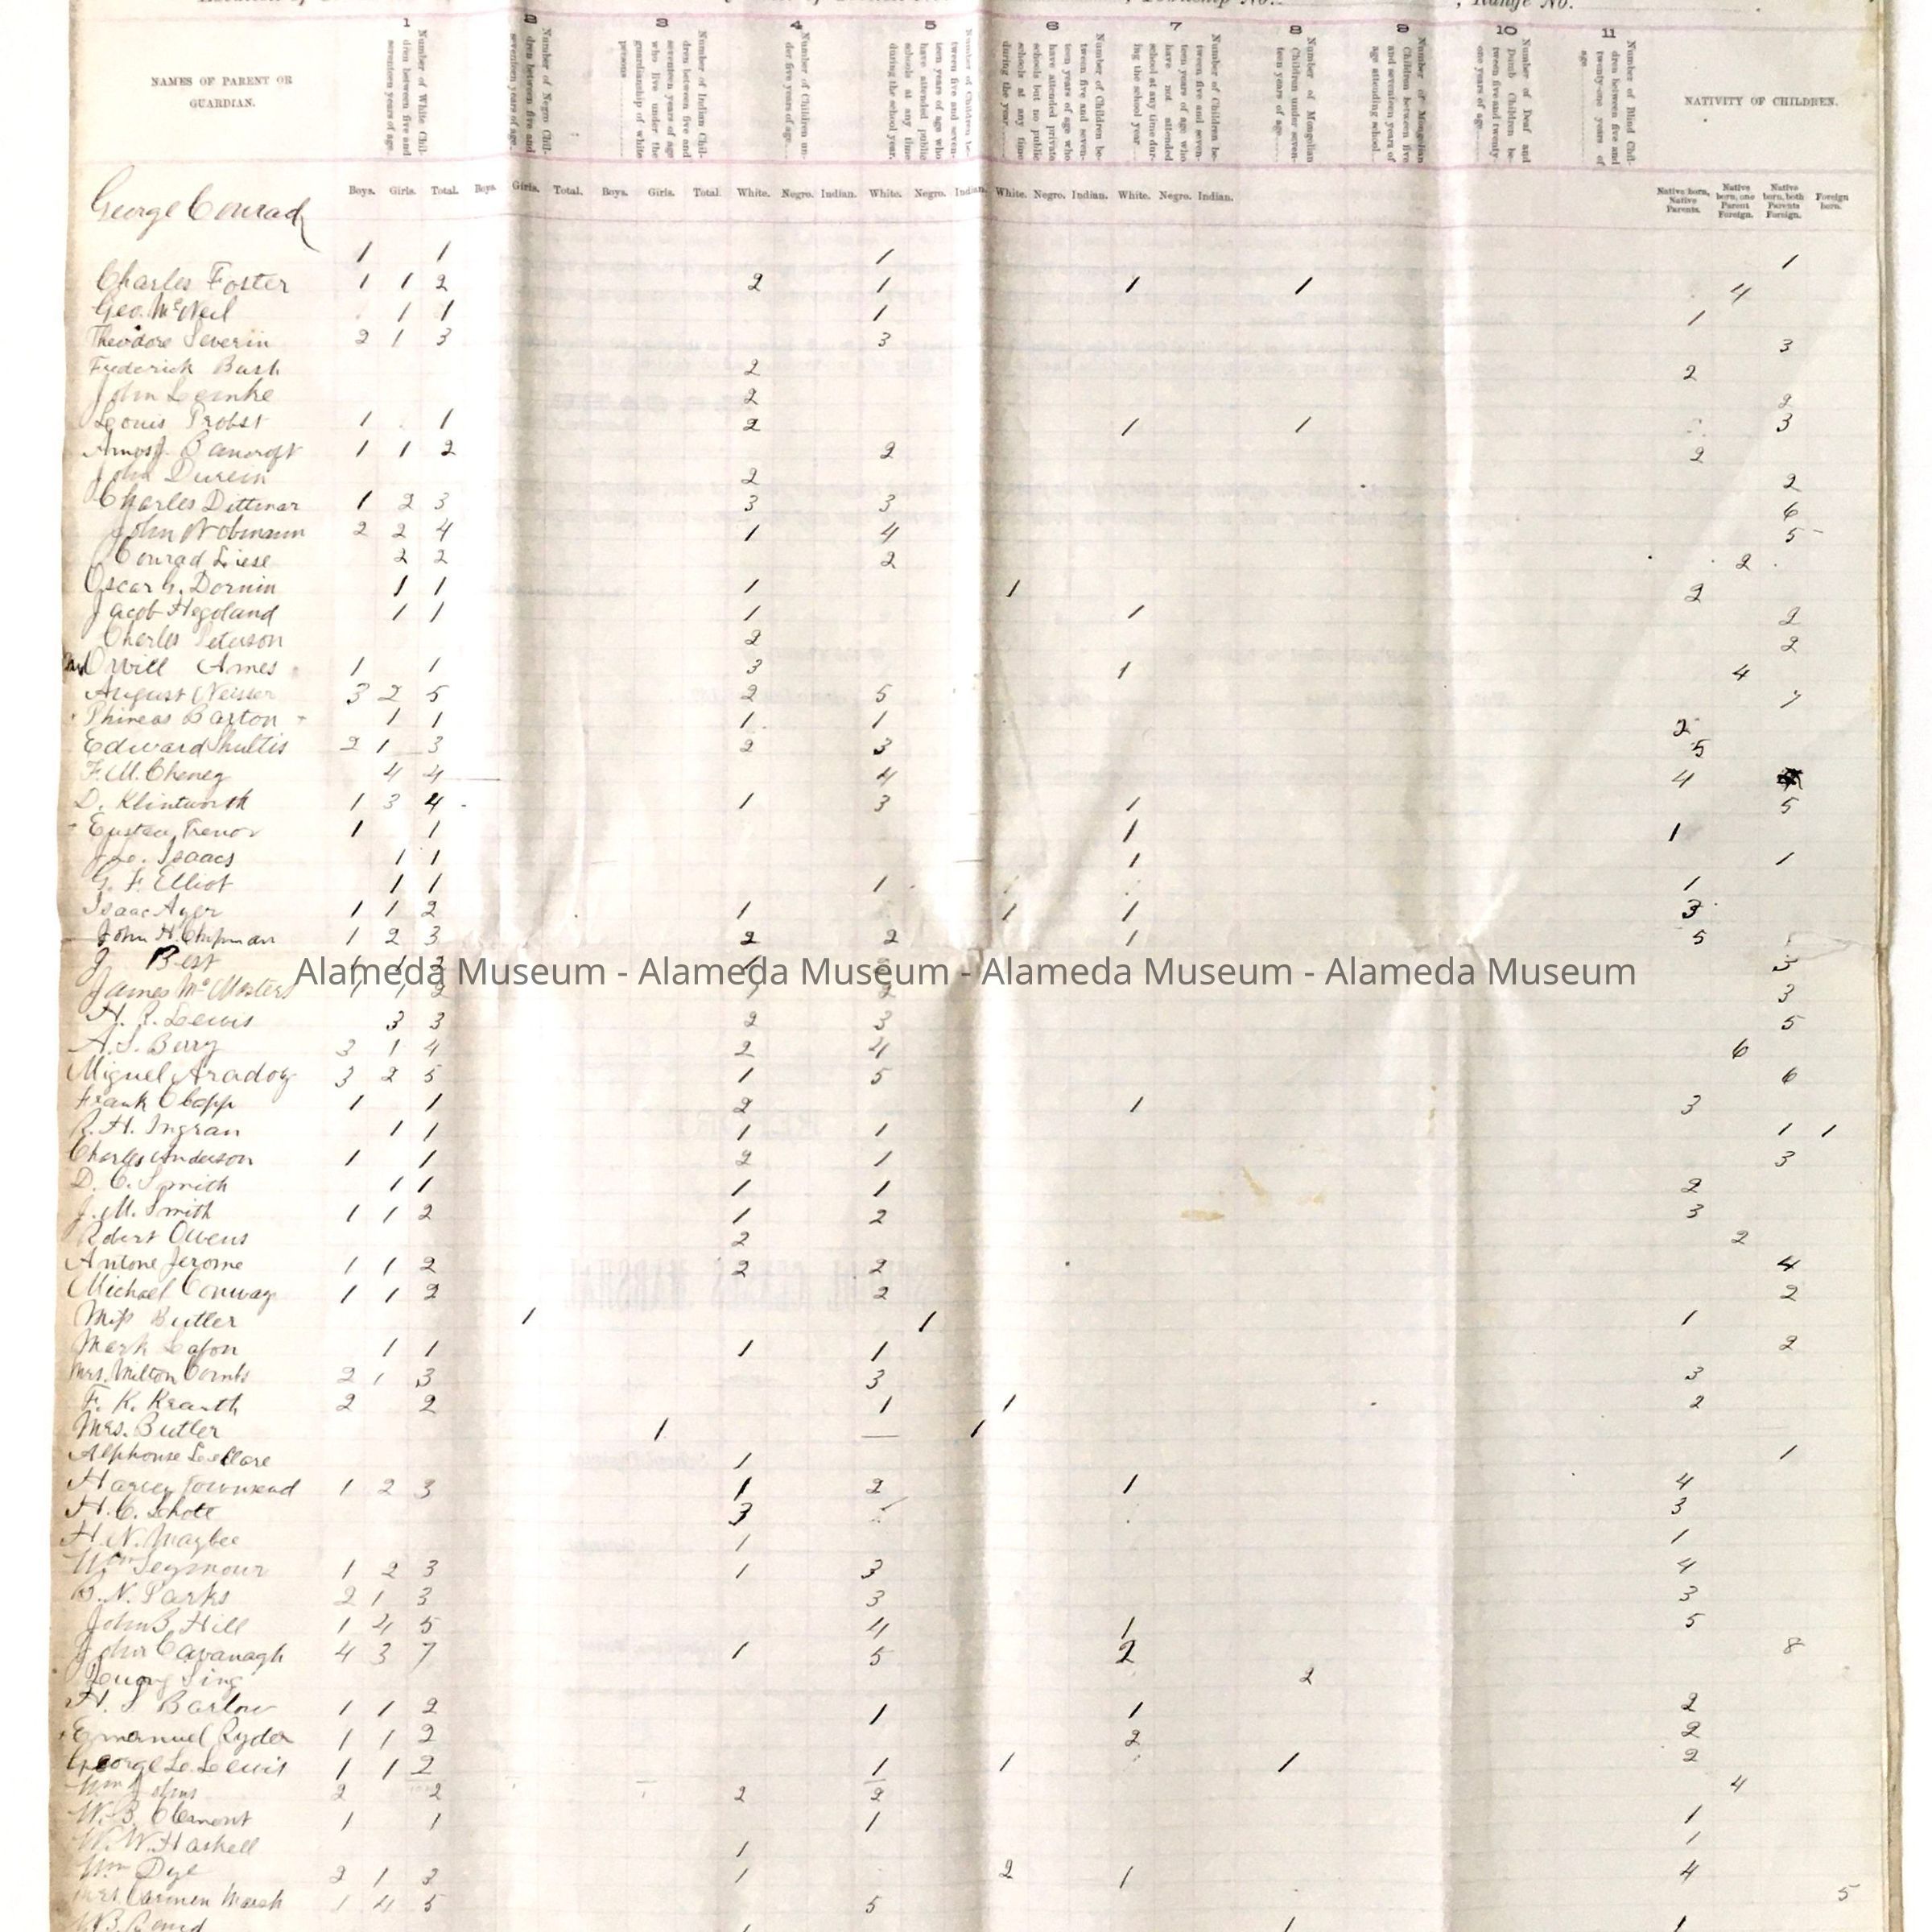 , Township No. , Range No.
1 2 3 4 5 6 7 8 9 10 11
NAMES OF PARENT OR GUARDIAN.
Number of White Children between five and seventeen years of age.
Number of Negro Children between five and seventeen years of age.
Number of Indian Children between five and seventeen years of age who live under the guardianship of white persons
Number of Children under five years of age
Number of Children between five and seventeen years of age who have attended public schools at any time during the school year.
Number of Children between five and seventeen years of age who have attended private schools but no public schools at any time during the year
Number of Children between five and seventeen years of age who have not attended school at any time during the school year
Number of Mongolian Children under seventeen years of age
Number of Mongolian Children between five and seventeen years of age attending school
Number of Deaf and Dumb Children between five and twenty-one years of age
Number of Blind Children between five and twenty-one years of age
NATIVITY OF CHILDREN.
Boys. Girls. Total. Boys. Girls. Total. Boys. Girls. Total. White. Negro. Indian. White. Negro. Indian. White. Negro. Indian. White. Negro. Indian. Native born, Native Parents. Native born, one Parent Foreign. Native born, both Parents Foreign. Foreign born.
George Conrad 1 1 1 1
Charles Foster 1 1 2 2 1 1 1 4
Geo. McNeil 1 1 1 1
Theodore Severin 2 1 3 3 3
Frederick Bush 2 2
John Lemke 2 2
Louis Probst 1 1 2 1 1 3
Amos J. Bancroft 1 1 2 2 2
John Durein 2 2
Charles Dittmar 1 2 3 3 3 6
John Wobmann 2 2 4 1 4 5
Conrad Liese 2 2 2 2
Oscar G. Dornin 1 1 1 1 2
Jacob Hegoland 1 1 1 1 2
Charles Peterson 2 2
Orvill Ames 1 1 3 1 4
August Neisser 3 2 5 2 5 7
Phineas Barton 1 1 1 1 2
Edward Shultis 2 1 3 2 3 5
F. M. Cheney 4 4 4 4
D. Klintworth 1 3 4 1 3 1 5
Trenor 1 1 1 1
Isaacs 1 1 1 1
G. F. Elliot 1 1 1 1
Isaac Ayer 1 1 2 1 1 1 3
John H. Chipman 1 2 3 2 2 1 5
J Best 1 1 2 1 2 3
Alameda Museum - Alameda Museum - Alameda Museum - Alameda Museum
James McMasters 1 1 2 1 2 3
H. P. Lewis 3 3 2 3 5
A. S. Berry 3 1 4 2 4 6
Miguel Aradoy 3 2 5 1 5 6
Frank Clapp 1 1 2 1 3
R. H. Ingran 1 1 1 1 1 1
Charles Anderson 1 1 2 1 3
D. C. Smith 1 1 1 1 2
J. M. Smith 1 1 2 1 2 3
Robert Owens 2 2
Antone Jerome 1 1 2 2 2 4
Michael Conway 1 1 2 2 2
Miss Butler 1 1 1
Mark Lafon 1 1 1 1 2
Mrs. Milton Combs 2 1 3 3 3
F. K. Krauth 2 2 1 1 2
Mrs. Butler 1 — 1
Alphonse LeClare 1 1
Harvey Townsend 1 2 3 1 2 1 4
H. C. Schott 3 3
H. N. Maybee 1 1
Wm Seymour 1 2 3 1 3 4
B. N. Parks 2 1 3 3 3
John B. Hill 1 4 5 4 1 5
John Cavanagh 4 3 7 1 5 2 8
Sing 2
H. S Barlow 1 1 2 1 1 2
Emanuel Ryder 1 1 2 2 2
George L. Lewis 1 1 2 1 1 1 2
Wm Johns 2 2 2 2 4
W. B. Clement 1 1 1 1
W. W. Haskell 1 1
Wm Dye 2 1 3 1 2 1 4
Mrs Carmen Marsh 1 4 5 5 5
1 1 1